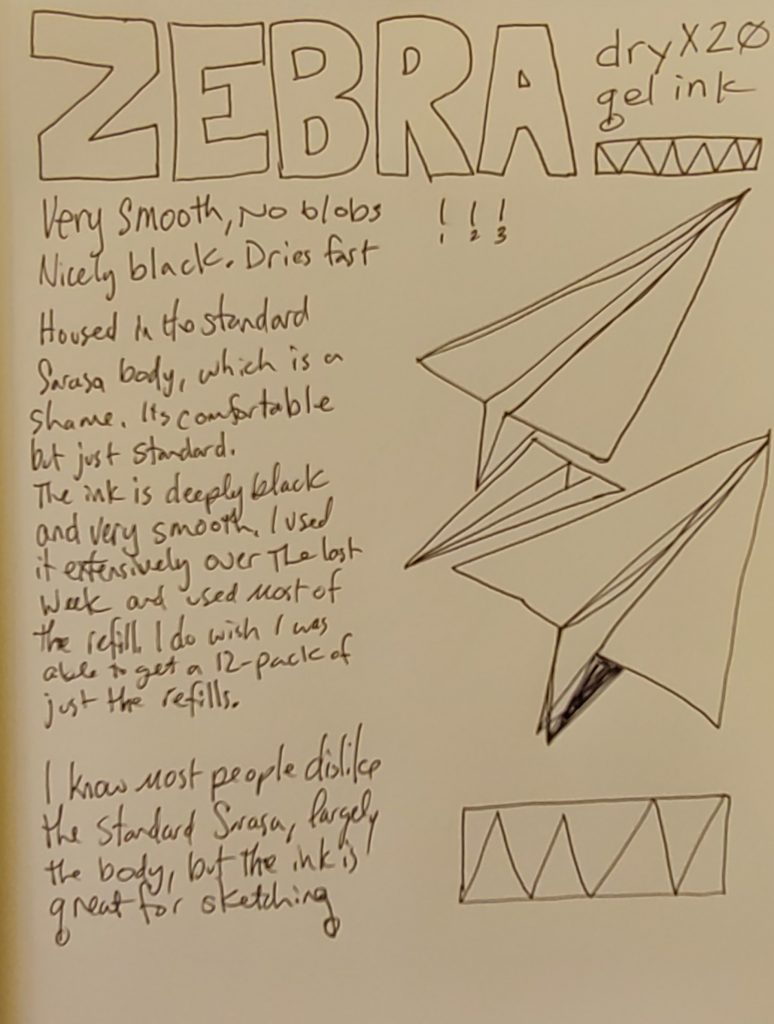 ZEBRA
dryX20
gel ink
Very smooth, No blobs
1 2 3
Nicely black. Dries fast
Housed in the standard
Sarasa body, which is a
shame. Its comfortable
but just standard.
The ink is deeply black
and very smooth. I used
it extensively over The last
week and used most of
the refill. I do wish I was
able to get a 12-pack of
just the refills.
I know most people dislike
the standard Sarasa, largely
the body, but the ink is
great for sketching